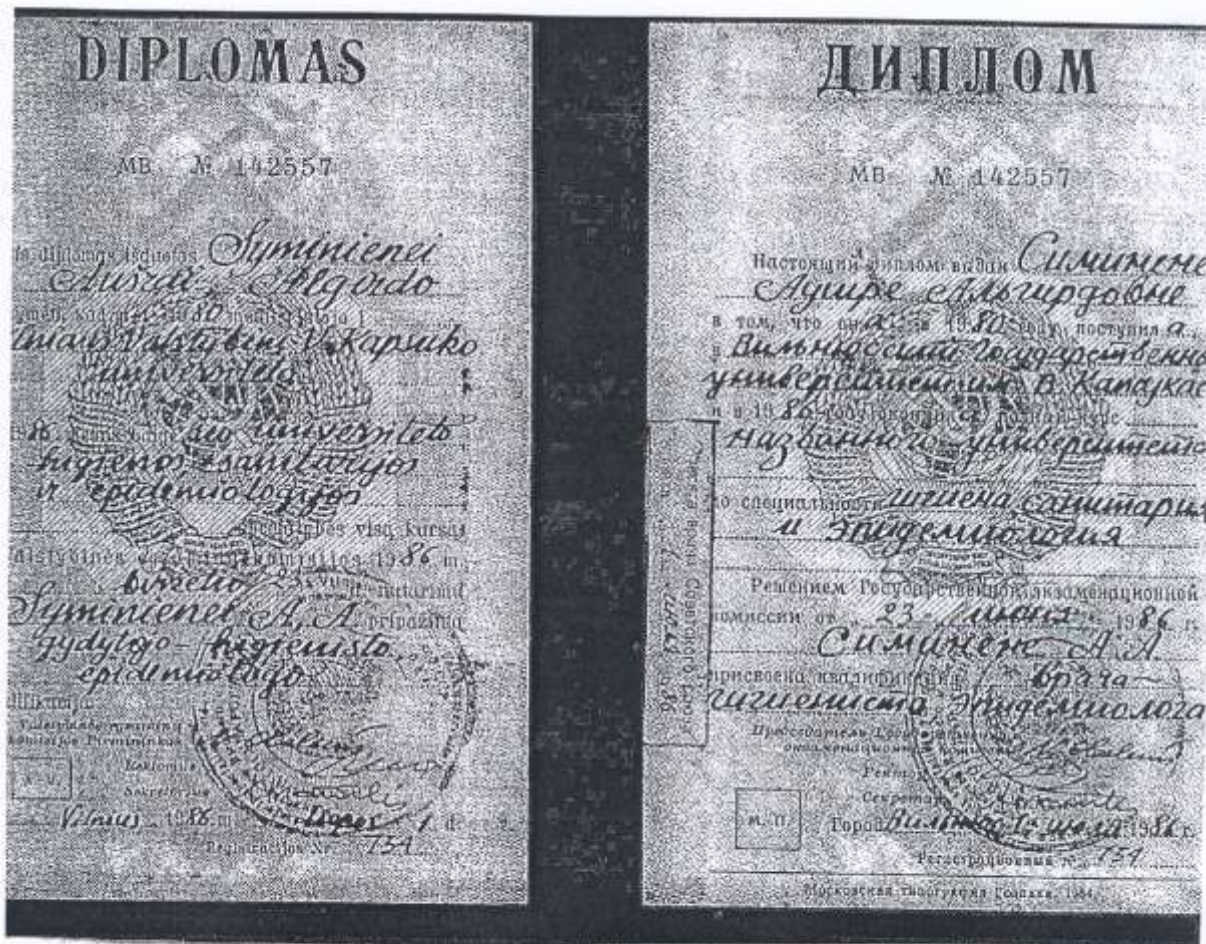 DIPLOMAS
МВ № 142557
diplomas išduotas Syminienei
Aušrai Algirdo
Valstybinį V. Kapsuko
universitetą
1986 universiteto
higienos, sanitarijos
ir epidemiologijos
specialybės visą kursą
1986 m.
birželio
Syminienei A. A.
gydytojo-higienisto,
epidemiologo
Pirmininkas
Rektorius
Sekretorius
Vilnius, 1986 m. liepos 1 d.
Registracijos Nr. 754
ДИПЛОМ
МВ № 142557
Настоящий диплом выдан Симинене
Аушре Альгирдовне
в том, что он а в 1980 году поступил а
в Вильнюсский государственны
университет им. В. Капсукас
и в 1986 году окончил а полный курс
названного университета
по специальности гигиена, санитария
и эпидемиология
Решением Государственной экзаменационной
комиссии от 23 июня 1986 г.
Симинене А. А.
присвоена квалификация врача-
гигиениста, эпидемиолога
Председатель Государственной
экзаменационной комиссии
Ректор
Секретарь
М. П. Город Вильнюс 1 июля 1986 г.
Регистрационный № 754
Московская типография Гознака. 1984.
врача Советского Союза